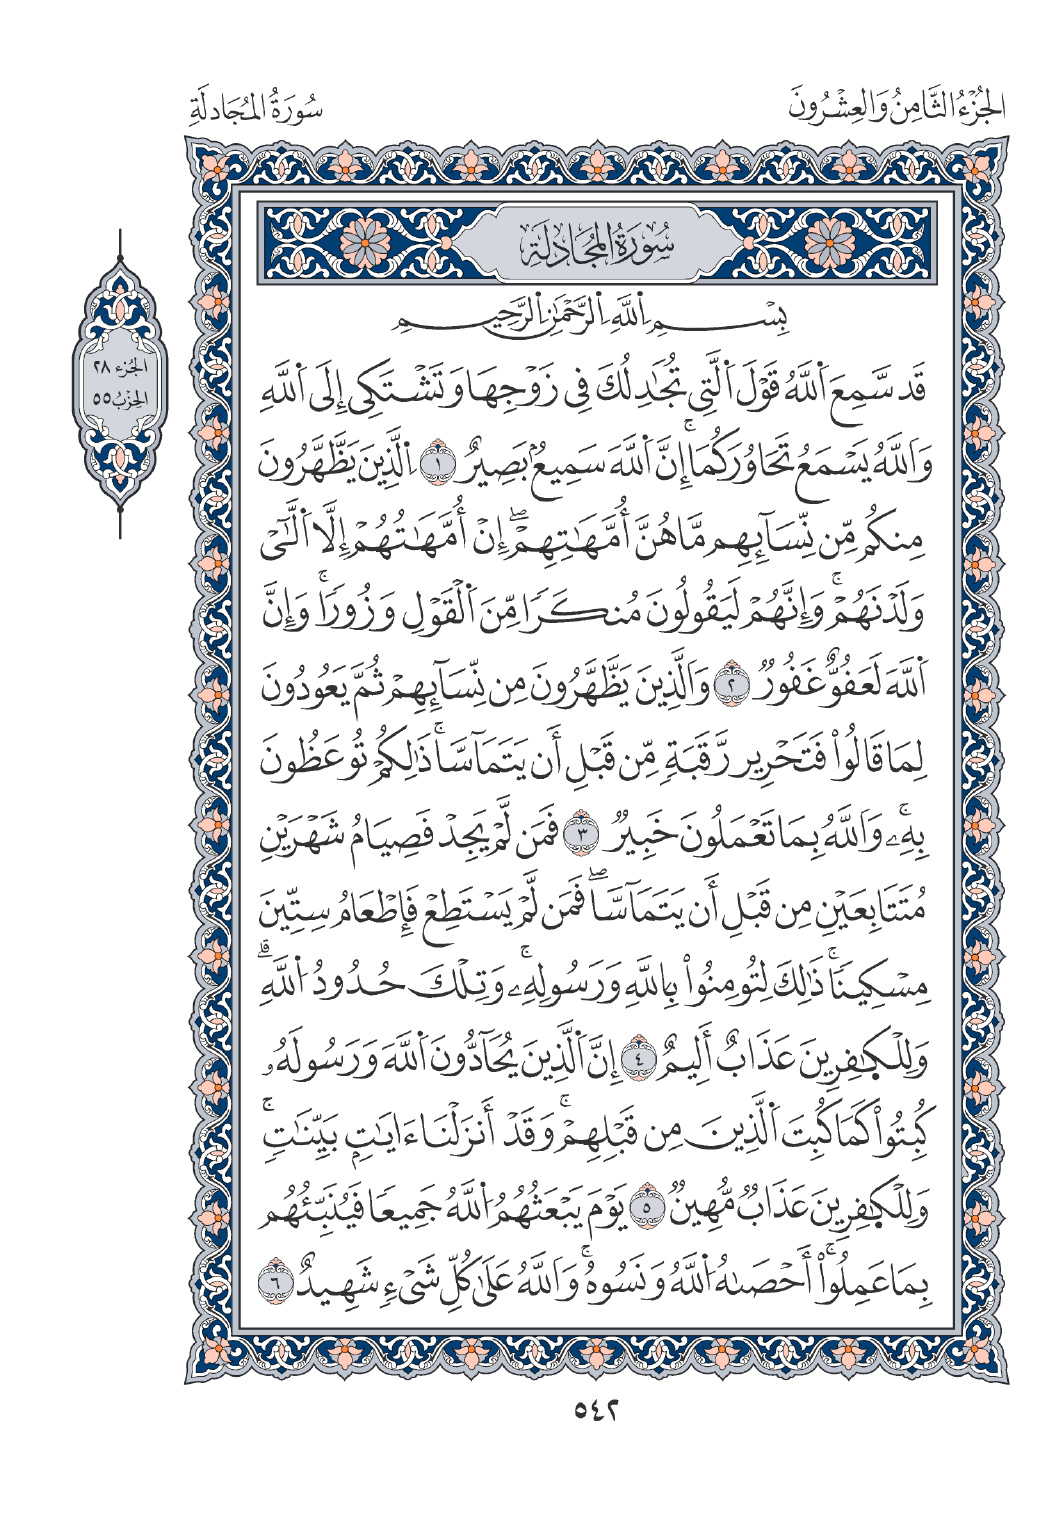 الجُزْءُ الثَّامِنُ وَالعِشْرُونَ
سُورَةُ المُجَادلَةِ
سُورَةُ المُجَادلَةِ
بِسْمِ اِ۬للَّهِ اِ۬لرَّحْمَٰنِ اِ۬لرَّحِيمِ
قَد سَّمِعَ اَ۬للَّهُ قَوْلَ اَ۬لَّتِي تُجَٰدِلُكَ فِي زَوْجِهَا وَتَشْتَكِي إِلَى اَ۬للَّهِ
وَاَللَّهُ يَسْمَعُ تَحَاوُرَكُمَاۚ إِنَّ اَ۬للَّهَ سَمِيعُۢ بَصِيرٌ ١ اِ۬لَّذِينَ يَظَّهَّرُونَ
مِنكُم مِّن نِّسَآئِهِم مَّا هُنَّ أُمَّهَٰتِهِمْۖ إِنْ أُمَّهَٰتُهُمْ إِلَّا اَ۬لَّٰٓيْ
وَلَدْنَهُمْۚ وَإِنَّهُمْ لَيَقُولُونَ مُنكَرٗا مِّنَ اَ۬لْقَوْلِ وَزُورٗاۚ وَإِنَّ
اَ۬للَّهَ لَعَفُوٌّ غَفُورٞ ٢ وَاَلَّذِينَ يَظَّهَّرُونَ مِن نِّسَآئِهِمْ ثُمَّ يَعُودُونَ
لِمَا قَالُواْ فَتَحْرِير رَّقَبَةٖ مِّن قَبْلِ أَن يَتَمَآسَّاۚ ذَٰلِكُمْ تُوعَظُونَ
بِهِۦۚ وَاَللَّهُ بِمَا تَعْمَلُونَ خَبِيرٞ ٣ فَمَن لَّمْ يَجِدْ فَصِيَامُ شَهْرَيْنِ
مُتَتَابِعَيْنِ مِن قَبْلِ أَن يَتَمَآسَّاۖ فَمَن لَّمْ يَسْتَطِعْ فَإِطْعَامُ سِتِّينَ
مِسْكِينٗاۚ ذَٰلِكَ لِتُومِنُواْ بِاللَّهِ وَرَسُولِهِۦۚ وَتِلْكَ حُدُودُ اُ۬للَّهِۗ
وَلِلْكٰ۪فِرِينَ عَذَابٌ أَلِيمٌ ٤ إِنَّ اَ۬لَّذِينَ يُحَآدُّونَ اَ۬للَّهَ وَرَسُولَهُۥ
كُبِتُواْ كَمَا كُبِتَ اَ۬لَّذِينَ مِن قَبْلِهِمْۚ وَقَدْ أَنزَلْنَا ءَايَٰتِۢ بَيِّنَٰتٖۚ
وَلِلْكٰ۪فِرِينَ عَذَابٞ مُّهِينٞ ٥ يَوْمَ يَبْعَثُهُمُ اُ۬للَّهُ جَمِيعٗا فَيُنَبِّئُهُم
بِمَا عَمِلُواْۚ أَحْصَىٰهُ اُ۬للَّهُ وَنَسُوهُۚ وَاَللَّهُ عَلَىٰ كُلِّ شَيْءٖ شَهِيدٌ ٦
الجُزء ٢٨
الحِزبُ ٥٥
٥٤٢